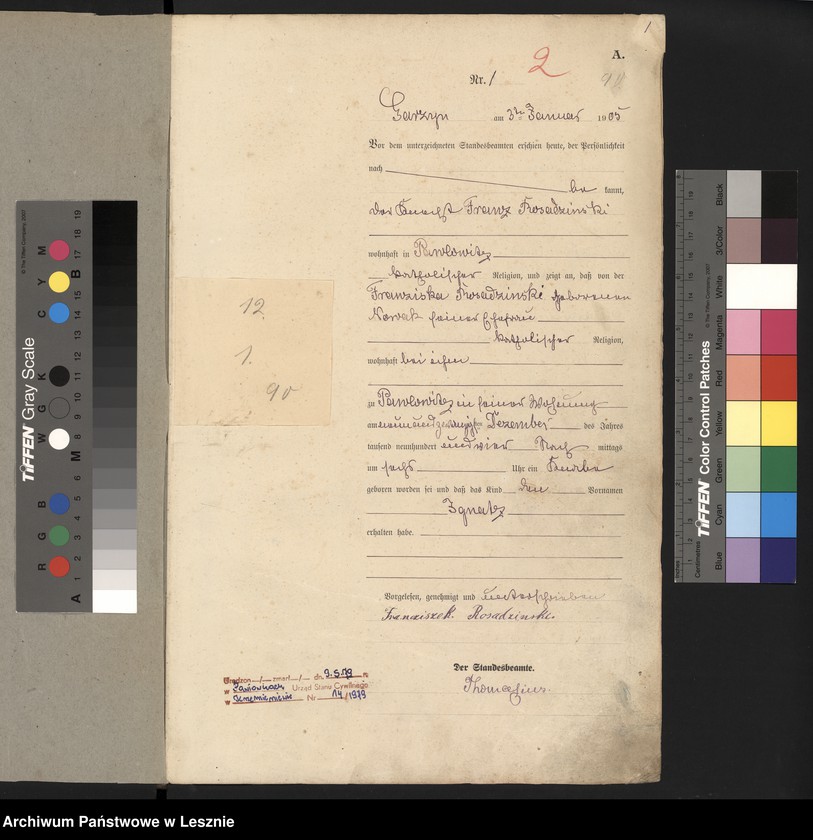 1
A.
2
Nr. 1
Garzyn am 3ten Januar 1905
Vor dem unterzeichneten Standesbeamten erschien heute, der Persönlichkeit
nach
be kannt,
der Knecht Franz Rosadzinski
wohnhaft in Pawlowitz
katholischer Religion, und zeigt an, daß von der
Franziska Rosadzinski geborenen
Nowak seiner Ehefrau
katholischer Religion,
wohnhaft bei ihm
zu Pawlowitz in seiner Wohnung
am neunundzwanzigsten Dezember des Jahres
tausend neunhundert und vier Nach mittags
um sechs Uhr ein Knabe
geboren worden sei und daß das Kind den Vornamen
Ignatz
erhalten habe.
Vorgelesen, genehmigt und unterschrieben
Franciszek Rosadzinski.
Der Standesbeamte.
Thomasius.
12
1.
90
zmarł dn. 9.5.79 r.
w Urząd Stanu Cywilnego
w Nr 14/1979
TIFFEN Gray Scale
© The Tiffen Company, 2007
R G B W G K C Y M
A 1 2 3 4 5 6 M 8 9 10 11 12 13 14 15 B 17 18 19
TIFFEN Color Control Patches
© The Tiffen Company, 2007
Centimetres
Inches
Blue Cyan Green Yellow Red Magenta White 3/Color Black
Archiwum Państwowe w Lesznie